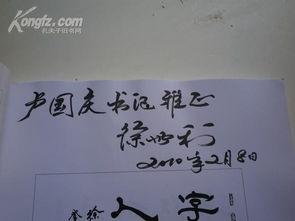 Kongfz.com
孔夫子旧书网
卢国庆书记雅正
徐
利
2010年2月8日
人字
徐